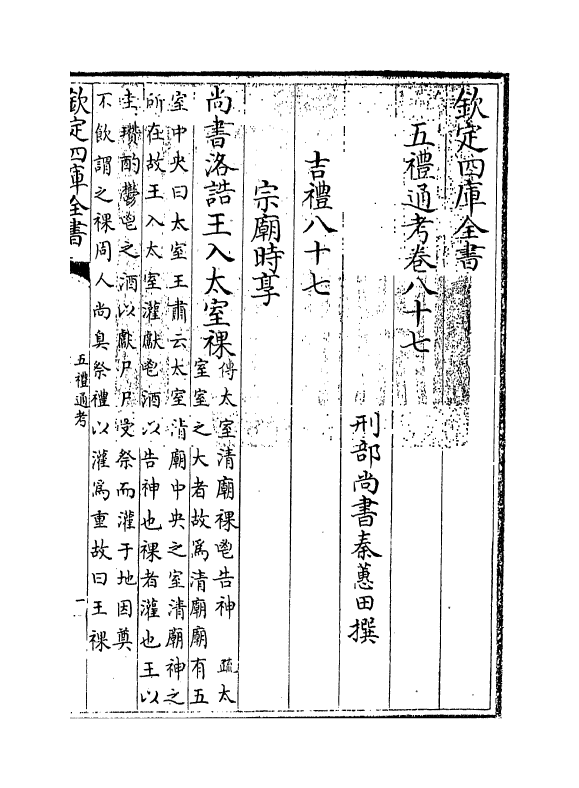 欽定四庫全書
五禮通考卷八十七
刑部尚書秦蕙田撰
吉禮八十七
宗廟時享
尚書洛誥王入太室祼傳太室清廟祼鬯告神 疏太
室室之大者故為清廟廟有五
室中央曰太室王肅云太室清廟中央之室清廟神之
所在故王入太室灌獻鬯酒以告神也祼者灌也王以
圭瓚酌鬱鬯之酒以獻尸尸受祭而灌于地因奠
不飲謂之祼周人尚臭祭禮以灌為重故曰王祼
欽定四庫全書
五禮通考
一